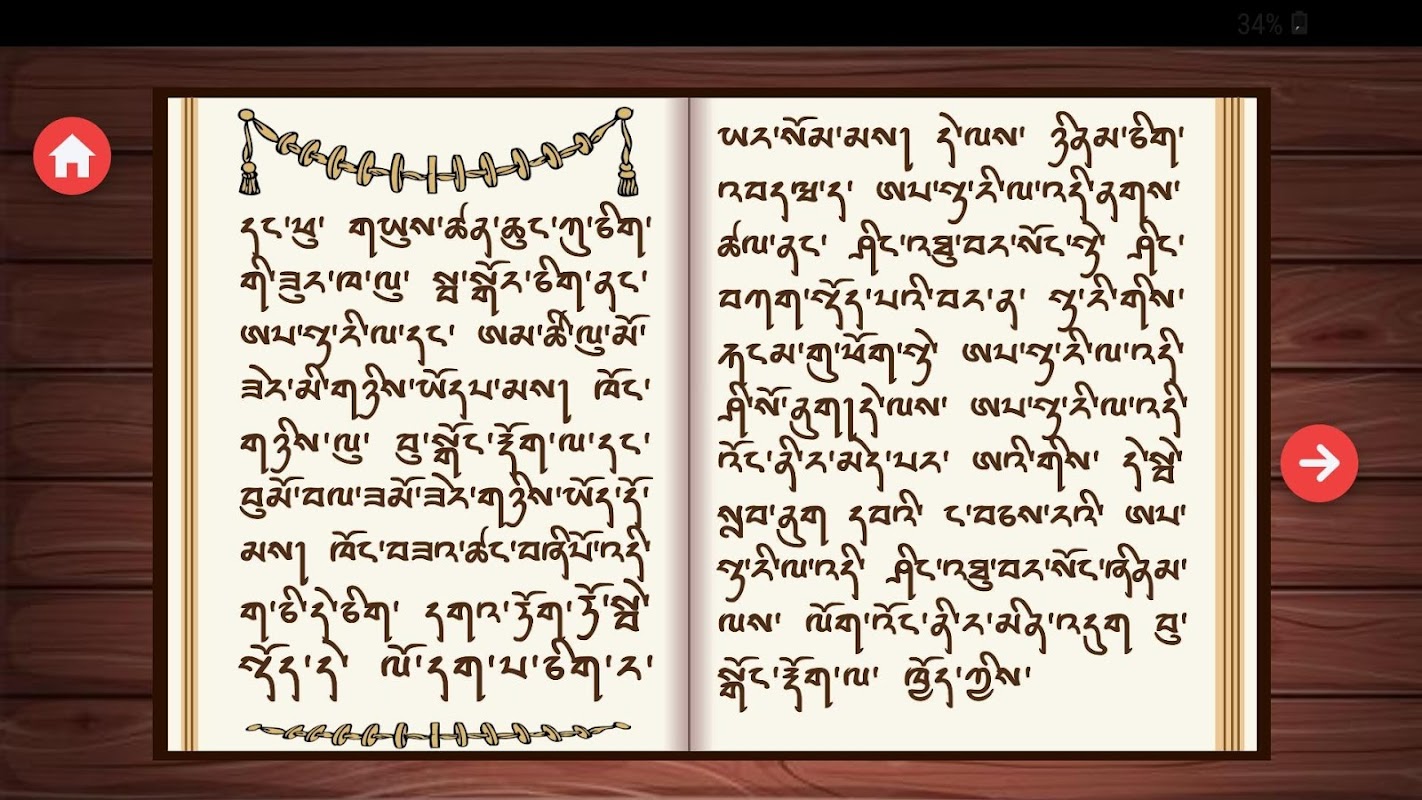 34%
དང་ཕུ་ གཡུས་ཚན་ཆུང་ཀུ་ཅིག་
གི་ཟུར་ཁ་ལུ་ སྦ་སྒོར་ཅིག་ནང་
ཨཔ་ཉ་རི་ལ་དང་ ཨམ་ཚོ་ལུ་མོ་
ཟེར་མི་གཉིས་ཡོདཔ་མས། ཁོང་
གཉིས་ལུ་ བུ་སྒོང་རྡོག་ལ་དང་
བུམོ་བལ་ཟམོ་ཟེར་གཉིས་ཡོད་དོ་
མས། ཁོང་བཟའ་ཚང་བཞིཔོ་འདི་
ག་ཅི་དེ་ཅིག་ དགའ་ཏོག་ཏོ་སྦེ་
སྡོད་དེ་ ལོ་དག་པ་ཅིག་ར་
ཡར་སོམ་མས། དེ་ལས་ ཉིནམ་ཅིག་
འབདཝ་ད་ ཨཔ་ཉ་རི་ལ་འདི་ནགས་
ཚལ་ནང་ ཤིང་འཐུ་བར་སོང་སྟེ་ ཤིང་
བཀག་སྡོད་པའི་བར་ན་ ཉ་རི་གིས་
རྐངམ་གུ་ཕོག་སྟེ་ ཨཔ་ཉ་རི་ལ་འདི་
ཤི་སོ་ནུག།དེ་ལས་ ཨཔ་ཉ་རི་ལ་འདི་
འོང་ནི་ར་མེད་པར་ ཨའི་གིས་ དེ་སྦེ་
སླབ་ནུག དབའི་ ང་བཅས་རའི་ ཨཔ་
ཉ་རི་ལ་འདི་ ཤིང་འཐུ་བར་སོང་ཞིནམ་
ལས་ ལོག་འོང་ནི་ར་མིན་འདུག བུ་
སྒོང་རྡོག་ལ་ ཁྱོད་ཀྱིས་